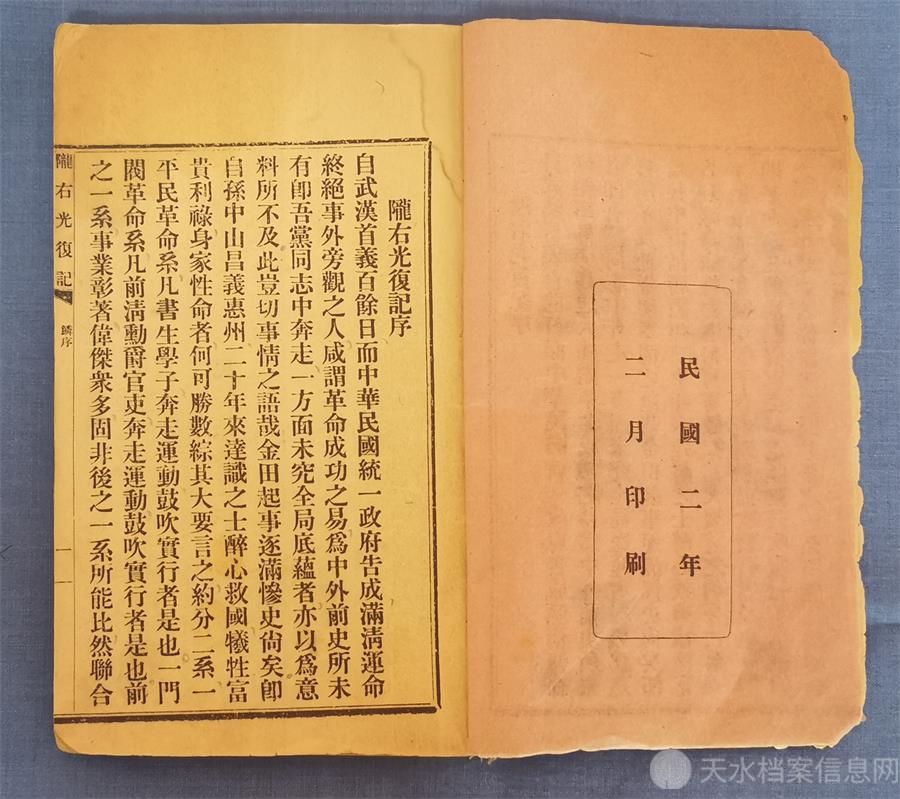 民國二年
二月印刷
隴右光復記序
自武漢首義百餘日而中華民國統一政府告成滿淸運命
終絕事外旁觀之人咸謂革命成功之易爲中外前史所未
有卽吾黨同志中奔走一方面未究全局底蘊者亦以爲意
料所不及此豈切事情之語哉金田起事逐滿慘史尙矣卽
自孫中山昌義惠州二十年來達識之士醉心救國犧牲富
貴利祿身家性命者何可勝數綜其大要言之約分二系一
平民革命系凡書生學子奔走運動鼓吹實行者是也一門
閥革命系凡前淸勳爵官吏奔走運動鼓吹實行者是也前
之一系事業彰著偉傑衆多固非後之一系所能比然聯合
隴右光復記
序
一
天水档案信息网